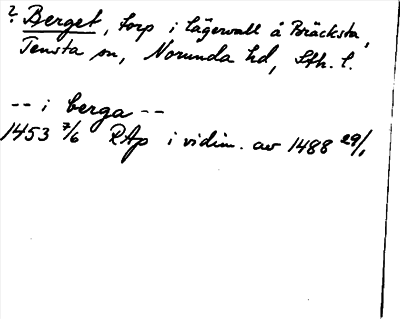 ? Berget, torp i Lägervall å Bräcksta,
Tensta sn, Norunda hd, Sth. l.
-- i berga --
1453 7/6 RAp i vidim. av 1488 29/1